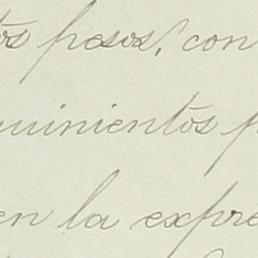 tos pesos, con
uinientos p
en la expre